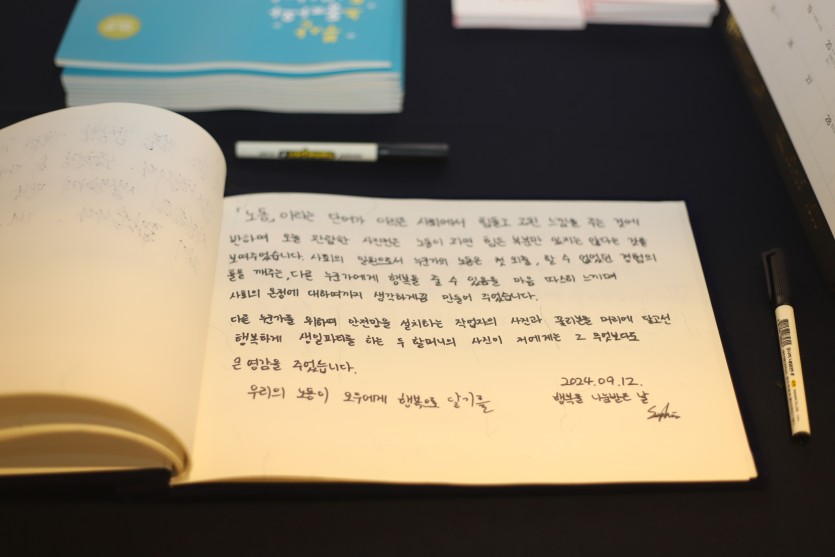 「노동」이라는 단어가 이따끔 사회에서 힘들고 고된 느낌을 주는 것에
반하여 오늘 관람한 사진전은 노동이 지닌 힘든 부분만 있지는 않다는 것을
보여주었습니다. 사회의 일원으로서 누군가의 노동은 첫
틀을 깨주는, 다른 누군가에게 행복을 줄 수 있음을 마음 따스히 느끼며
사회의 온정에 대하여까지 생각하게끔 만들어 주었습니다.
다른 누군가를 위하여 안전망을 설치하는 작업자의 사진과 꽃리본을 머리에 달고선
행복하게 생일파티를 하는 두 할머니의 사진이 저에게는 그 무엇보다도
큰 영감을 주었습니다.
우리의 노동이 모두에게 행복으로 닿기를
2024.09.12.
행복을 나눔받은 날